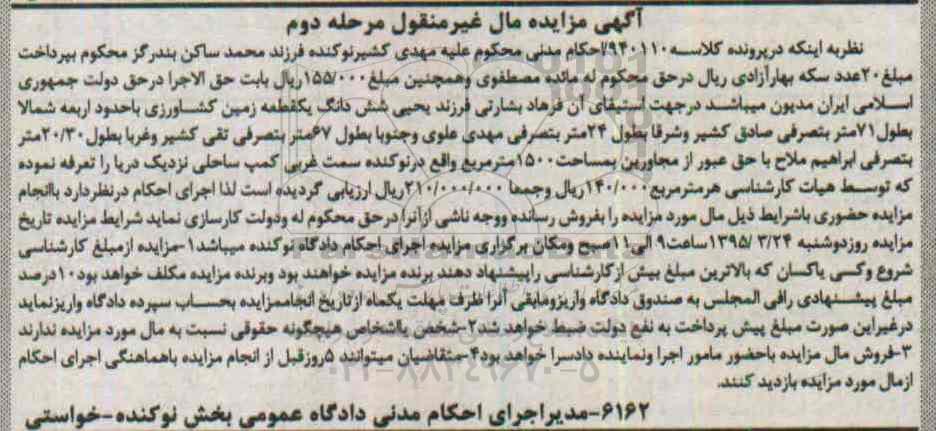 آگهی مزایده مال غیرمنقول مرحله دوم
نظربه اینکه درپرونده کلاسه ۹۴۰۱۱۰/احکام مدنی محکوم علیه مهدی کشیرنوکنده فرزند محمد ساکن بندرگز محکوم بپرداخت
مبلغ۲۰عدد سکه بهارآزادی ریال درحق محکوم له مائده مصطفوی وهمچنین مبلغ ۱۵۵/۰۰۰ریال بابت حق الاجرا درحق دولت جمهوری
اسلامی ایران مدیون میباشد درجهت استیفای آن فرهاد بشارتی فرزند یحیی شش دانگ یکقطعه زمین کشاورزی باحدود اربعه شمالا
بطول۷۱متر بتصرفی صادق کشیر وشرقا بطول ۲۴متر بتصرفی مهدی علوی وجنوبا بطول ۶۷متر بتصرفی تقی کشیر وغربا بطول۲۰/۳۰متر
بتصرفی ابراهیم ملاح با حق عبور از مجاورین بمساحت۱۵۰۰مترمربع واقع درنوکنده سمت غربی کمپ ساحلی نزدیک دریا را تعرفه نموده
که توسط هیات کارشناسی هرمترمربع۱۴۰/۰۰۰ریال وجمعا ۲۱۰/۰۰۰/۰۰۰ریال ارزیابی گردیده است لذا اجرای احکام درنظردارد باانجام
مزایده حضوری باشرایط ذیل مال مورد مزایده را بفروش رسانده ووجه ناشی ازآنرا درحق محکوم له ودولت کارسازی نماید شرایط مزایده تاریخ
مزایده روزدوشنبه ۱۳۹۵/۳/۲۴ساعت۹ الی۱۱صبح ومکان برگزاری مزایده اجرای احکام دادگاه نوکنده میباشد۱-مزایده ازمبلغ کارشناسی
شروع وکسی یاکسان که بالاترین مبلغ بیش ازکارشناسی راپیشنهاد دهند برنده مزایده خواهند بود وبرنده مزایده مکلف خواهد بود۱۰درصد
مبلغ پیشنهادی رافی المجلس به صندوق دادگاه واریزومابقی آنرا ظرف مهلت یکماه ازتاریخ انجام‌مزایده بحساب سپرده دادگاه واریزنماید
درغیراین صورت مبلغ پیش پرداخت به نفع دولت ضبط خواهد شد۲-شخص یااشخاص هیچگونه حقوقی نسبت به مال مورد مزایده ندارند
۳-فروش مال مزایده باحضور مامور اجرا ونماینده دادسرا خواهد بود۴-متقاضیان میتوانند ۵روزقبل از انجام مزایده باهماهنگی اجرای احکام
ازمال مورد مزایده بازدید کنند.
۶۱۶۲-مدیراجرای احکام مدنی دادگاه عمومی بخش نوکنده-خواستی
۰۲۱-۸۸۳۴۹۶۷۰-۵